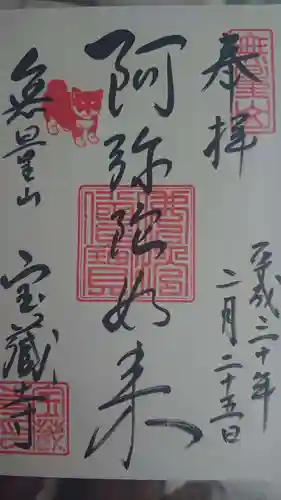 奉拝
平成三十年
二月二十五日
阿弥陀如来
無量山
宝蔵寺